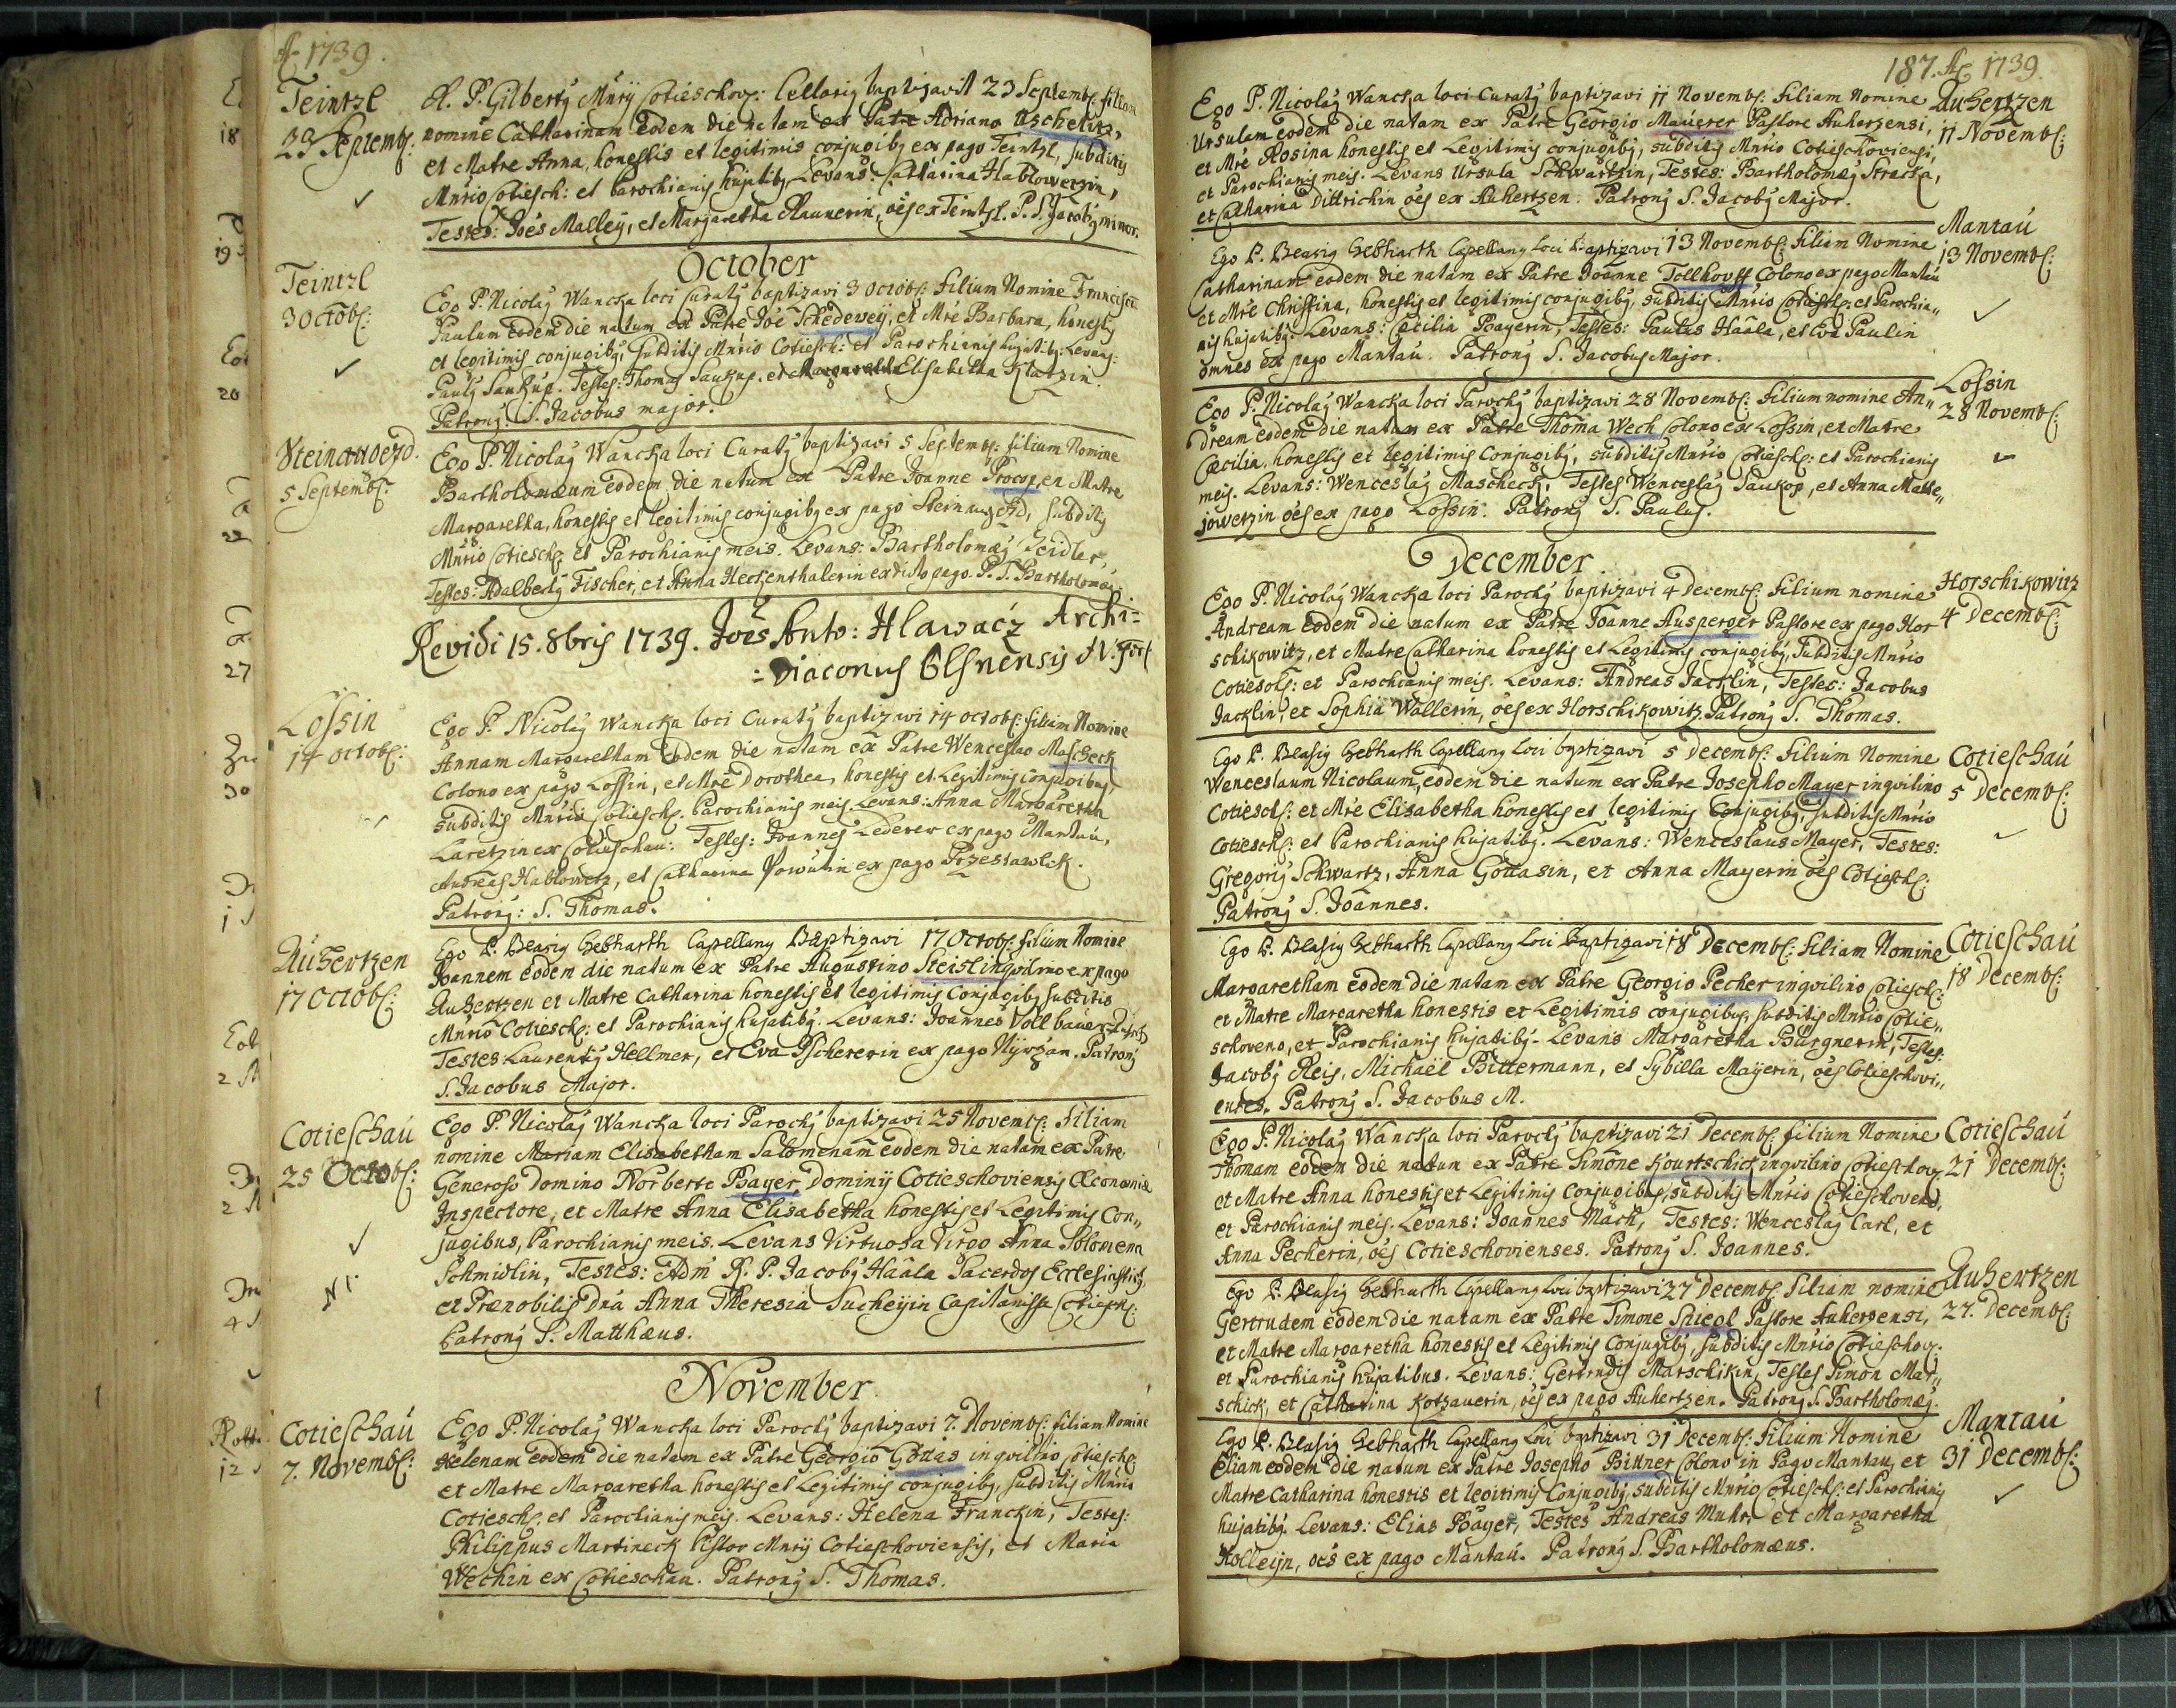 A 1739.
Teintzl
23 Septembr:
A. P. Gilberty Mnrij Cotieschov: Cellariy baptizavit 23 Septemb: filiam
nomine Catharinam Eodem die natam ex Patre Adriano Uschelitz,
et Matre Anna, honestis et legitimis conjugiby ex pago Teintzl, subditis
Mnrio Cotiesch: et Parochianis hujatiby Levans: Catharina Hablowetzin,
Testes: Joes Malleÿ, et Margaretha Raunerin, oes ex Teintzl. P. S. Jacoby minor.
October
Teintzl
3 Octob:
Ego P. Nicolay Wancka loci Curaty baptizavi 3 Octob: filium Nomine Francisci
Paulum Eodem die natum ex Patre Joe Schedeweÿ, et Mre Barbara, honesty
et legitimis conjugiby, subditis Mnrio Cotiesch: et Parochianis hujatiby. Levans:
Pauly Saukup. Testes: Thomas Saukup, et Elisabetha Klatzin.
Patrony: S. Jacobus major.
Steinauoezd.
5 Septemb:
Ego P. Nicolay Wancka loci Curaty baptizavi 5 Septemb: filium Nomine
Bartholomæum eodem die natum ex Patre Joanne Procop, en Matre
Margaretha, honestis et legitimis conjugiby ex pago Steinaugezd, subdity
Mnrio Cotiesch: et Parochianis meis. Levans: Bartholomæy Seidler,
Testes: Adalberty Fischer, et Anna Heckenthalerin ex dicto pago. P. S. Bartholomæy.
Revidi 15. 8bris 1739. Joes Anto: Hlawacz Archi=
=Diaconus Plsnensis
Lossin
14 octob:
Ego P. Nicolay Wancka loci Curaty baptizavi 14 octob: filiam Nomine
Annam Margaretham Eodem die natam ex Patre Wenceslao Mascheck
Colono ex pago Lossin, et Mre Dorothea, honestis et Legitimis Conjugibus,
subditis Mnrio Cotiesch: Parochianis meis. Levans: Anna Margaretha
Laretzin ex Cotieschau: Testes: Joannes Lederer ex pago Mantau,
Andreas Hablowetz, et Catharina Powutin ex pago Przestawlck.
Patrony: S. Thomas.
Auhertzen
17 Octob:
Ego P. Blasiy Gebharth Capellany Baptizavi 17 Octob: filium Nomine
Joannem eodem die natum ex Patre Augustino Steisl inqvilino ex pago
Auhertzen et Matre Catharina honestis et legitimis Conjugiby subditis
Mnrio Cotiesch: et Parochianis hujatiby. Levans: Joannes Vollbauer
Testes Laurentiy Hellmer, et Eva Pschererin ex pago Nÿrzan. Patrony
S. Jacobus Major.
Cotieschau
25 Octob:
Ego P. Nicolay Wancka loci Parochy baptizavi 25 Novemb: filiam
nomine Mariam Elisabetham Salomenam eodem die natam ex Patre
Generoso Domino Norberto Bayer Dominij Cotieschoviensis Œconomiæ
Inspectore, et Matre Anna Elisabetha honestis et Legitimis Con„
jugibus, Parochianis meis. Levans Virtuosa Virgo Anna Solomena
Schmidlin, Testes: Adm R. P. Jacoby Haala Sacerdos Ecclesiasticy,
et Prænobilis Dna Anna Theresia Sucheÿin Capitanissa Cotiesch:
Patrony S. Matthæus.
November.
Cotieschau
7. Novemb:
Ego P. Nicolay Wancka loci Parochy baptizavi 7. Novemb: filiam Nomine
Helenam eodem die natam ex Patre Georgio Gottas inqvilino Cotiesch:
et Matre Margaretha honestis et Legitimis conjugiby, subditis Mnrio
Cotiesch: et Parochianis meis. Levans: Helena Franckin, Testes:
Philippus Martineck Pistor Mnrij Cotieschoviensis, et Maria
Wechin ex Cotieschau. Patrony S. Thomas.
187. A 1739.
Auhertzen
11 Novemb:
Ego P. Nicolay Wancka loci Curaty baptizavi 11 Novemb: filiam Nomine
Ursulam eodem die natam ex Patre Georgio Mauerer Pastore Auhertzensi,
et Mre Rosina honestis et Legitimis conjugiby, subditis Mnrio Cotieschoviensi,
et Parochianis meis. Levans Ursula Schwartzin, Testes: Bartholomæy Stracka,
et Catharina Dittrichin oes ex Auhertzen. Patrony S. Jacoby Major.
Mantau
13 Novemb:
Ego P. Blasiy Gebharth Capellany loci baptizavi 13 Novemb: filiam Nomine
Catharinam eodem die natam ex Patre Joanne Tollhopff Colono ex pago Mantau
et Mre Christina, honestis et legitimis conjugiby, subditis Mnrio Cotiesch: et Parochia„
nis hujatiby. Levans: Cæcilia Bayerin, Testes: Paulus Haala, et Eva Paulin
omnes ex pago Mantau. Patrony S. Jacobus Major.
Lossin
28 Novemb:
Ego P. Nicolay Wancka loci Parochy baptizavi 28 Novemb: filium nomine An„
dream eodem die natum ex Patre Thoma Wech Colono ex Lossin, et Matre
Cæcilia, honestis et legitimis Conjugiby, subditis Mnrio Cotiesch: et Parochianis
meis. Levans: Wenceslay Mascheck, Testes Wenceslay Saukop, et Anna Matte„
jowetzin oes ex pago Lossin. Patrony S. Paulus.
December.
Horschikowitz
4 Decemb:
Ego P. Nicolay Wancka loci Parochy baptizavi 4 Decemb: filium nomine
Andream eodem die natum ex Patre Joanne Ausperger Pastore ex pago Hor
schikowitz, et Matre Catharina honestis et Legitimis conjugiby, subditis Mnrio
Cotiesch: et Parochianis meis. Levans: Andreas Jacklin, Testes: Jacobus
Jacklin, et Sophia Wallerin, oes ex Horschikowitz. Patrony S. Thomas.
Cotieschau
5 Decemb:
Ego P. Blasiy Gebharth Capellany loci baptizavi 5 Decemb: filium Nomine
Wenceslaum Nicolaum, eodem die natum ex Patre Josepho Mayer inqvilino
Cotiesch: et Mre Elisabetha honestis et legitimis Conjugiby, subditis Mnrio
Cotiesch: et Parochianis hujatiby. Levans: Wenceslaus Mayer, Testes:
Gregoriy Schwartz, Anna Gottasin, et Anna Mayerin oes Cotiesch:
Patrony S. Joannes.
Cotieschau
18 Decemb:
Ego P. Blasiy Gebharth Capellany Loci Baptizavi 18 Decemb: filiam Nomine
Margaretham eodem die natam ex Patre Georgio Pecher inqvilino Cotiesch:
et Matre Margaretha honestis et Legitimis conjugibus, subditis Mnrio Cotie„
schoveno, et Parochianis hujatiby. Levans Margaretha Burgnerin, Testes:
Jacoby Reis, Michaël Bittermann, et Sybilla Mayerin, oes Cotieschovi„
enses. Patrony S. Jacobus M.
Cotieschau
21 Decemb:
Ego P. Nicolay Wancka loci Parochy baptizavi 21 Decemb: filium Nomine
Thomam eodem die natum ex Patre Simone Kourtschick inqvilino Cotieschov:
et Matre Anna honestis et Legitimis Conjugibus, subditis Mnrio Cotieschoveno,
et Parochianis meis. Levans: Joannes Mach, Testes: Wenceslay Carl, et
Anna Pecherin, oes Cotieschovienses. Patrony S. Joannes.
Auhertzen
27. Decemb:
Ego P. Blasiy Gebharth Capellany Loci baptizavi 27 Decemb: filiam nomine
Gertrudem eodem die natam ex Patre Simone Spiegl Pastore Auherzensi,
et Matre Margaretha honestis et Legitimis Conjugiby, subditis Mnrio Cotieschov:
et Parochianis hujatibus. Levans: Gertrudis Marschikin, Testes Simon Mar„
schick, et Catharina Kotzauerin, oes ex pago Auhertzen. Patrony S. Bartholomæy.
Mantau
31 Decemb:
Ego P. Blasiy Gebharth Capellany Loci baptizavi 31 Decemb: filium Nomine
Eliam eodem die natum ex Patre Josepho Bittner Colono in Pago Mantau, et
Matre Catharina honestis et legitimis Conjugiby, subditis Mnrio Cotiesch: et Parochianis
hujatiby. Levans: Elias Bayer, Testes Andreas Muhr, et Margaretha
Kolleijn, oes ex pago Mantau. Patrony S. Bartholomæus.